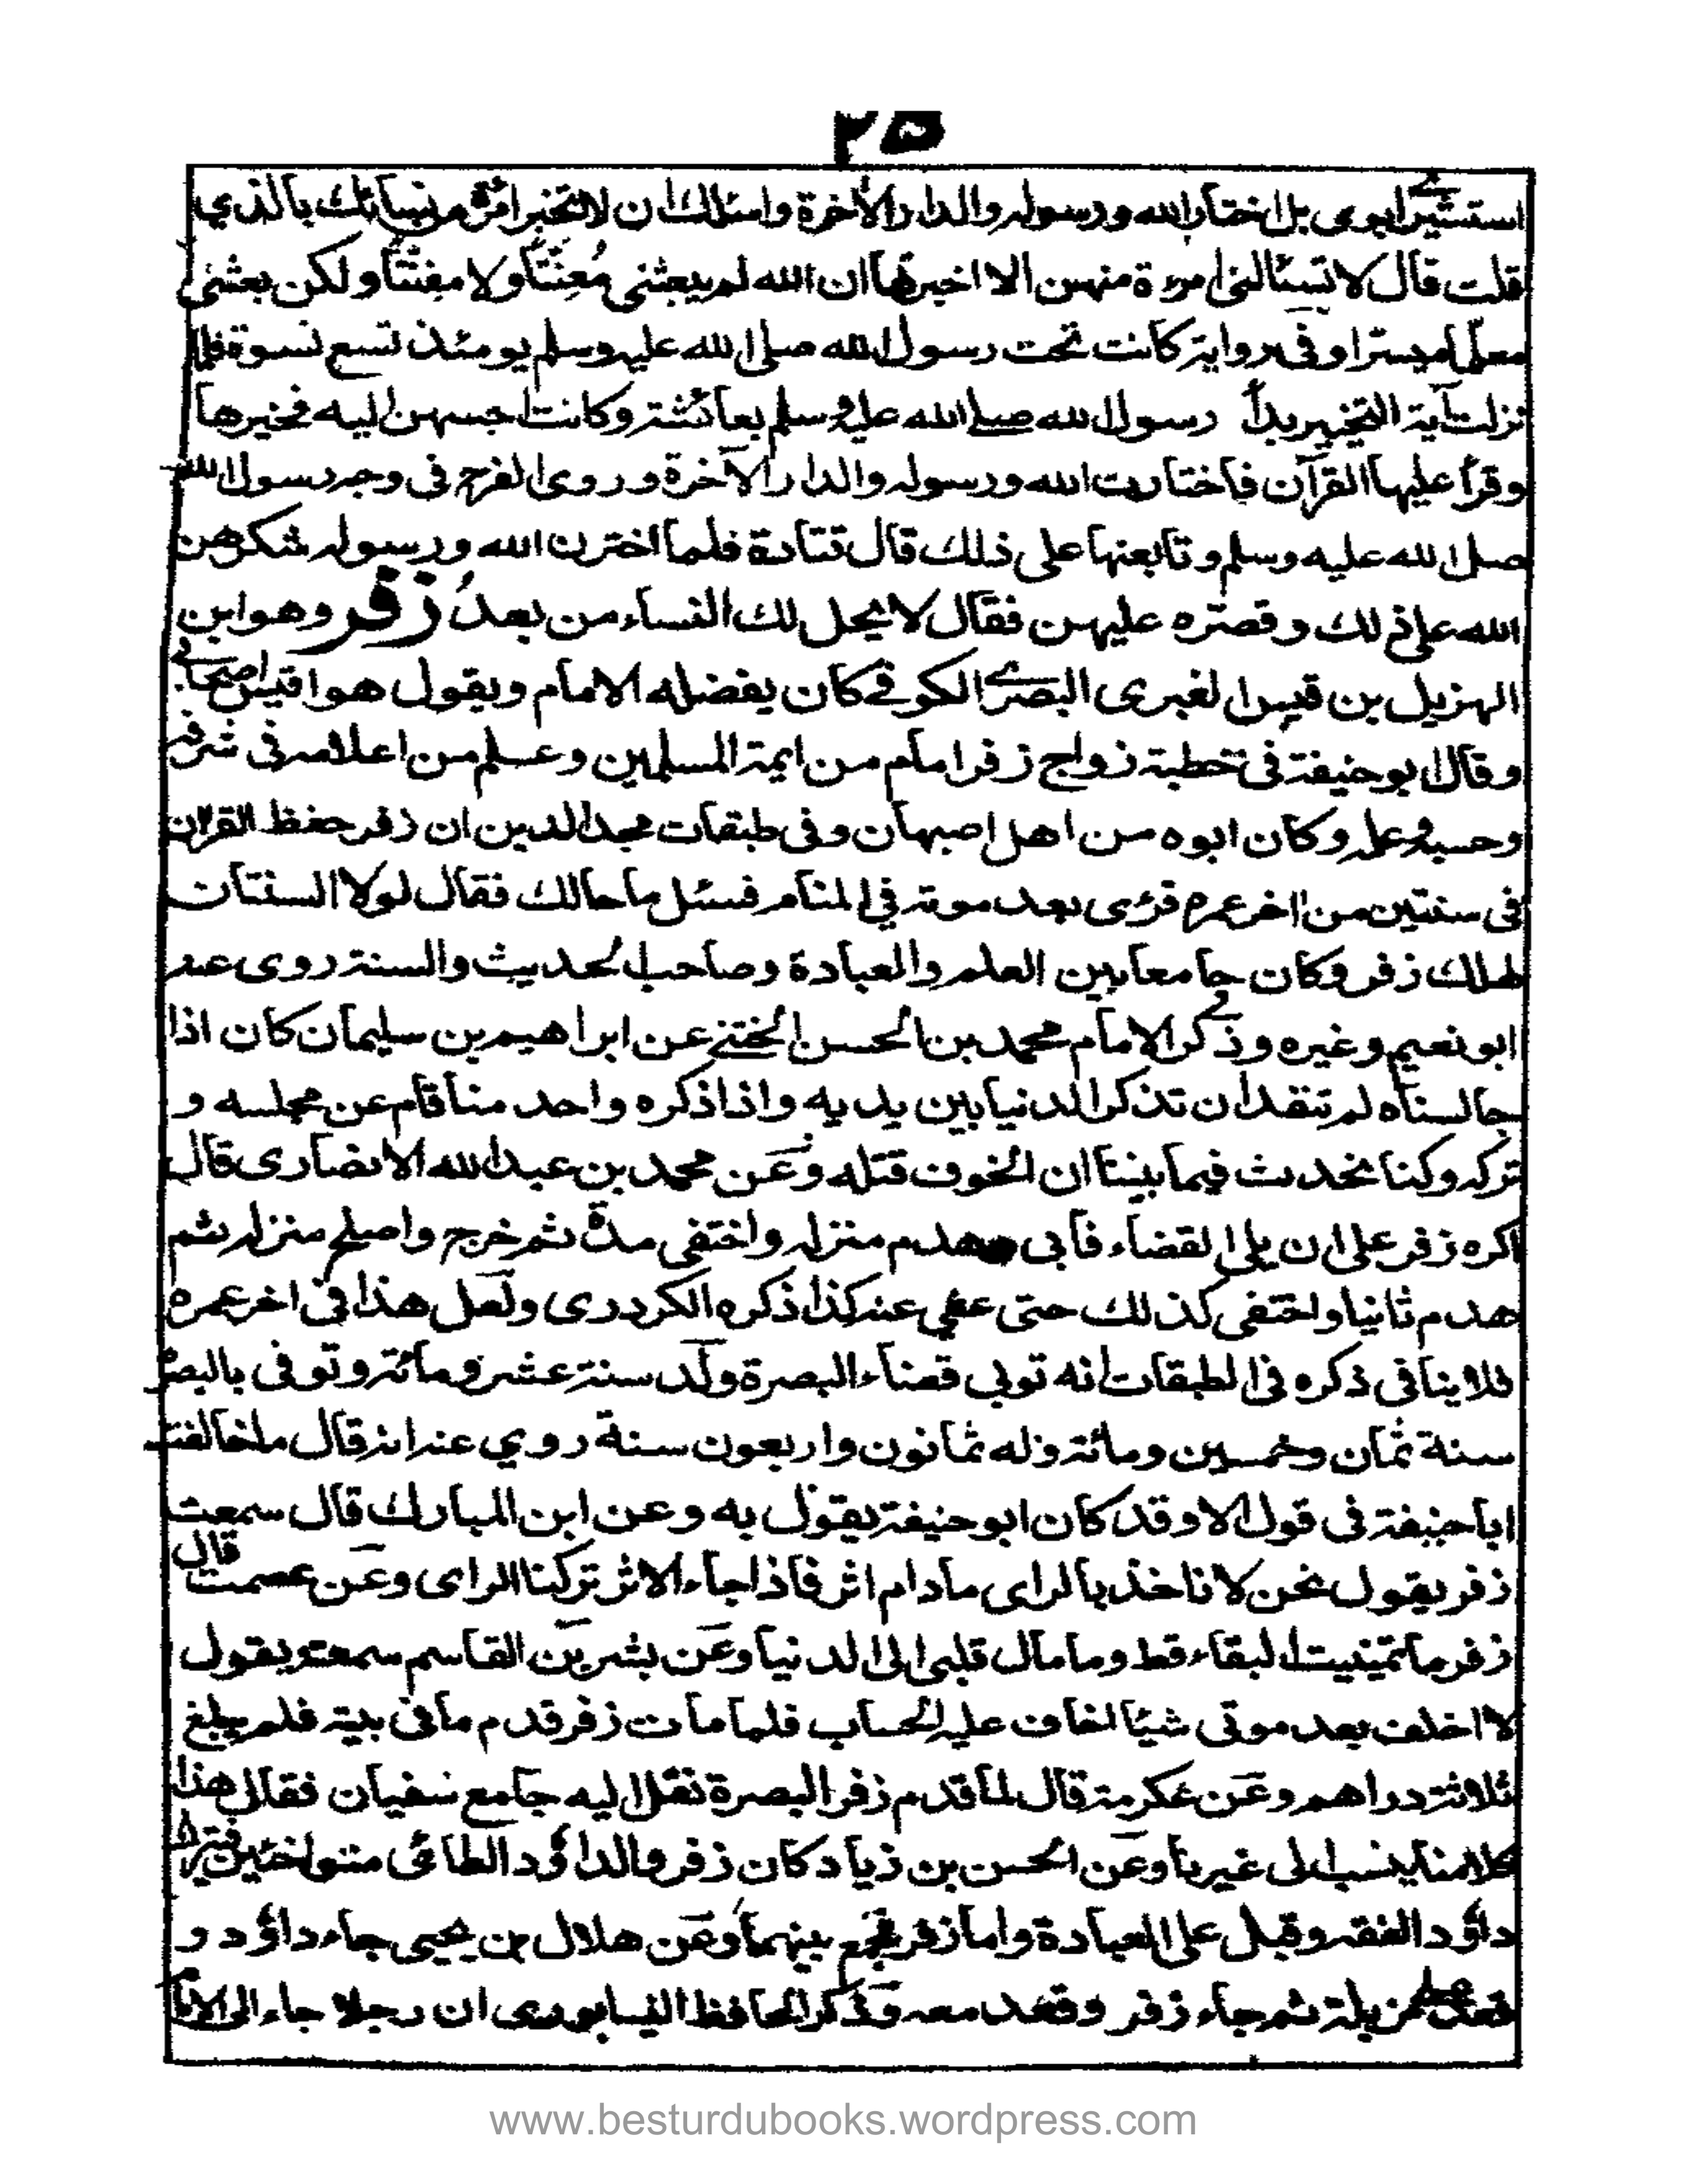 ٣٥
استشير ابوى بل اختار الله ورسوله والدار الأخرة واسئلك ان لا تخبر امرأة من نسائك بالذي
قلت قال لا تسئالنى امرءة منهن الا اخبرتها ان الله لم يبعثنى مُعنّتًا ولا مفنتًا ولكن بعثنى
معلمًا ميسترا وفى رواية كانت تحت رسول الله صلى الله عليه وسلم يومئذ تسع نسوة فلما
نزلت آية التخيير بدأ رسول الله صلے الله عليه وسلم بعائشة وكانت احبهن اليه فخيرها
وقرأ عليها القرآن فاختارت الله ورسوله والدار الآخرة وروى الفرح فى وجه رسول الله
صلى الله عليه وسلم وتابعنها على ذلك قال قتادة فلما اخترن الله ورسوله شكرهن
الله على ذلك وقصره عليهن فقال لا يحل لك النساء من بعدُ زفر وهو ابن
الهزيل بن قيس العنبرى البصرے الكوفے كان يفضله الامام ويقول هو اقيس اصحابے
وقال ابو حنيفة فى خطبة زواج زفر امام من ايمة المسلمين وعسلم من اعلامه فى شرفه
وحسبه وعلمه وكان ابوه من اهل اصبهان وفى طبقات مجد الدين ان زفر حفظ القران
فى سنتين من اخر عمره قرئى بعد موته في المنام فسئل ما حالك فقال لولا السنتان
لهلك زفر وكان جامعا بين العلم والعبادة وصاحب الحديث والسنة روى عنه
ابو نعيم وغيره وذكر الامام محمد بن الحسن الختنے عن ابراهيم بن سليمان كان اذا
جالسناه لم نقدر ان تذكر الدنيا بين يديه واذا ذكره واحد منا قام عن مجلسه و
تركه وكنا نحدث فيما بيننا ان الخوف قتله وعن محمد بن عبد الله الانصارى قال
اكره زفر على ان يلى القضاء فابى وهدم منزله واختفى مدة ثم خرج واصلح منزله ثم
هدم ثانيا واختفى كذلك حتى عفي عنه كذا ذكره الكردرى ولعل هذا فى اخر عمره
فلا ينافى ذكره فى الطبقات انه تولى قضاء البصرة ولد سنة عشر ومائة وتوفى بالبصرة
سنة ثمان وخمسين ومائة وله ثمانون واربعون سنة روي عنه انه قال ما خالفت
ابا حنيفة فى قول الا وقد كان ابو حنيفة يقول به وعن ابن المبارك قال سمعت
زفر يقول نحن لا ناخذ بالراى مادام اثر فاذا جاء الاثر تركنا الراى وعن عصمت قال
زفر ما تمنيت البقاء قط وما مال قلبى الى الدنيا وعن بشر بن القاسم سمعته يقول
لا اخلف بعد موتى شيئا اخاف عليه الحساب فلما مات زفر قدم ما فى بيته فلم يبلغ
ثلاثة دراهم وعن عكرمة قال لما قدم زفر البصرة نقل اليه جامع سفيان فقال هذا
كلامنا ينسب الى غيرنا وعن الحسن بن زياد كان زفر والداؤد الطائى متواخئين فترك
داؤد الفقه وقبل على العبادة واما زفر فجمع بينهما وعن هلال بن يحيى جاء داؤد و
قعد على مزبلة ثم جاء زفر وقعد معه وذكر الحافظ النيسابورى ان رجلا جاء الى الامام
www.besturdubooks.wordpress.com